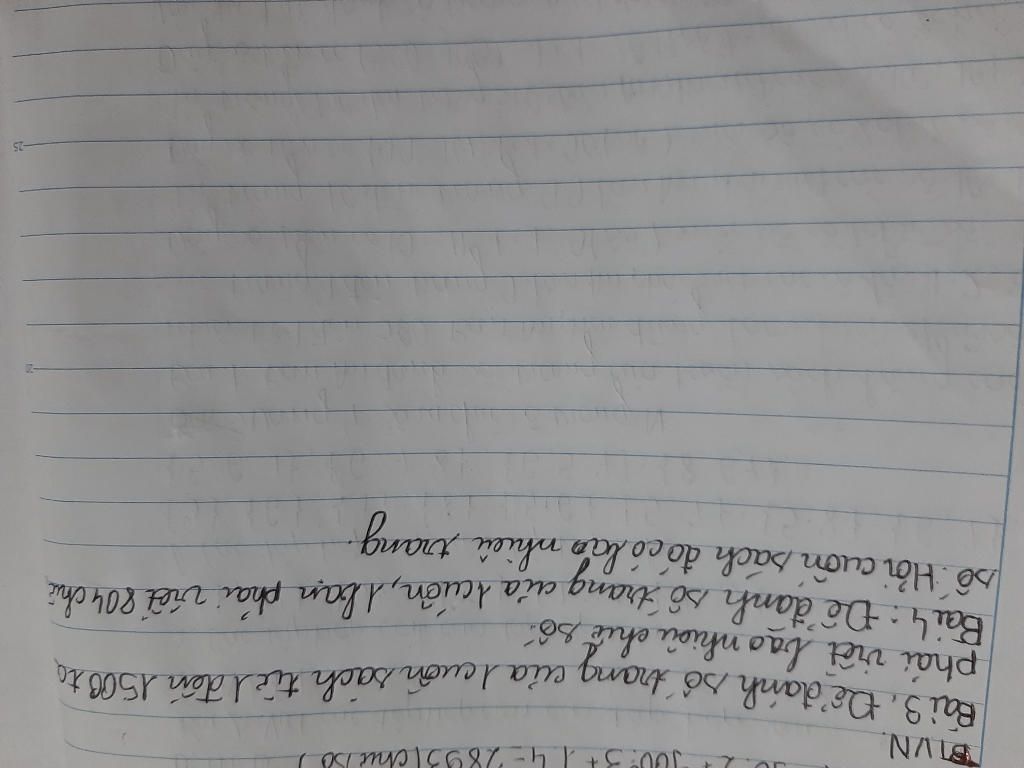 90.2+900.3+1.4=2893(chữ số)
BTVN.
Bài 3. Để đánh số trang của 1 cuốn sách từ 1 đến 1500 ta
phải viết bao nhiêu chữ số.
Bài 4: Để đánh số trang của 1 cuốn, 1 bạn phải viết 804 chữ
số. Hỏi cuốn sách đó có bao nhiêu trang.
25
20